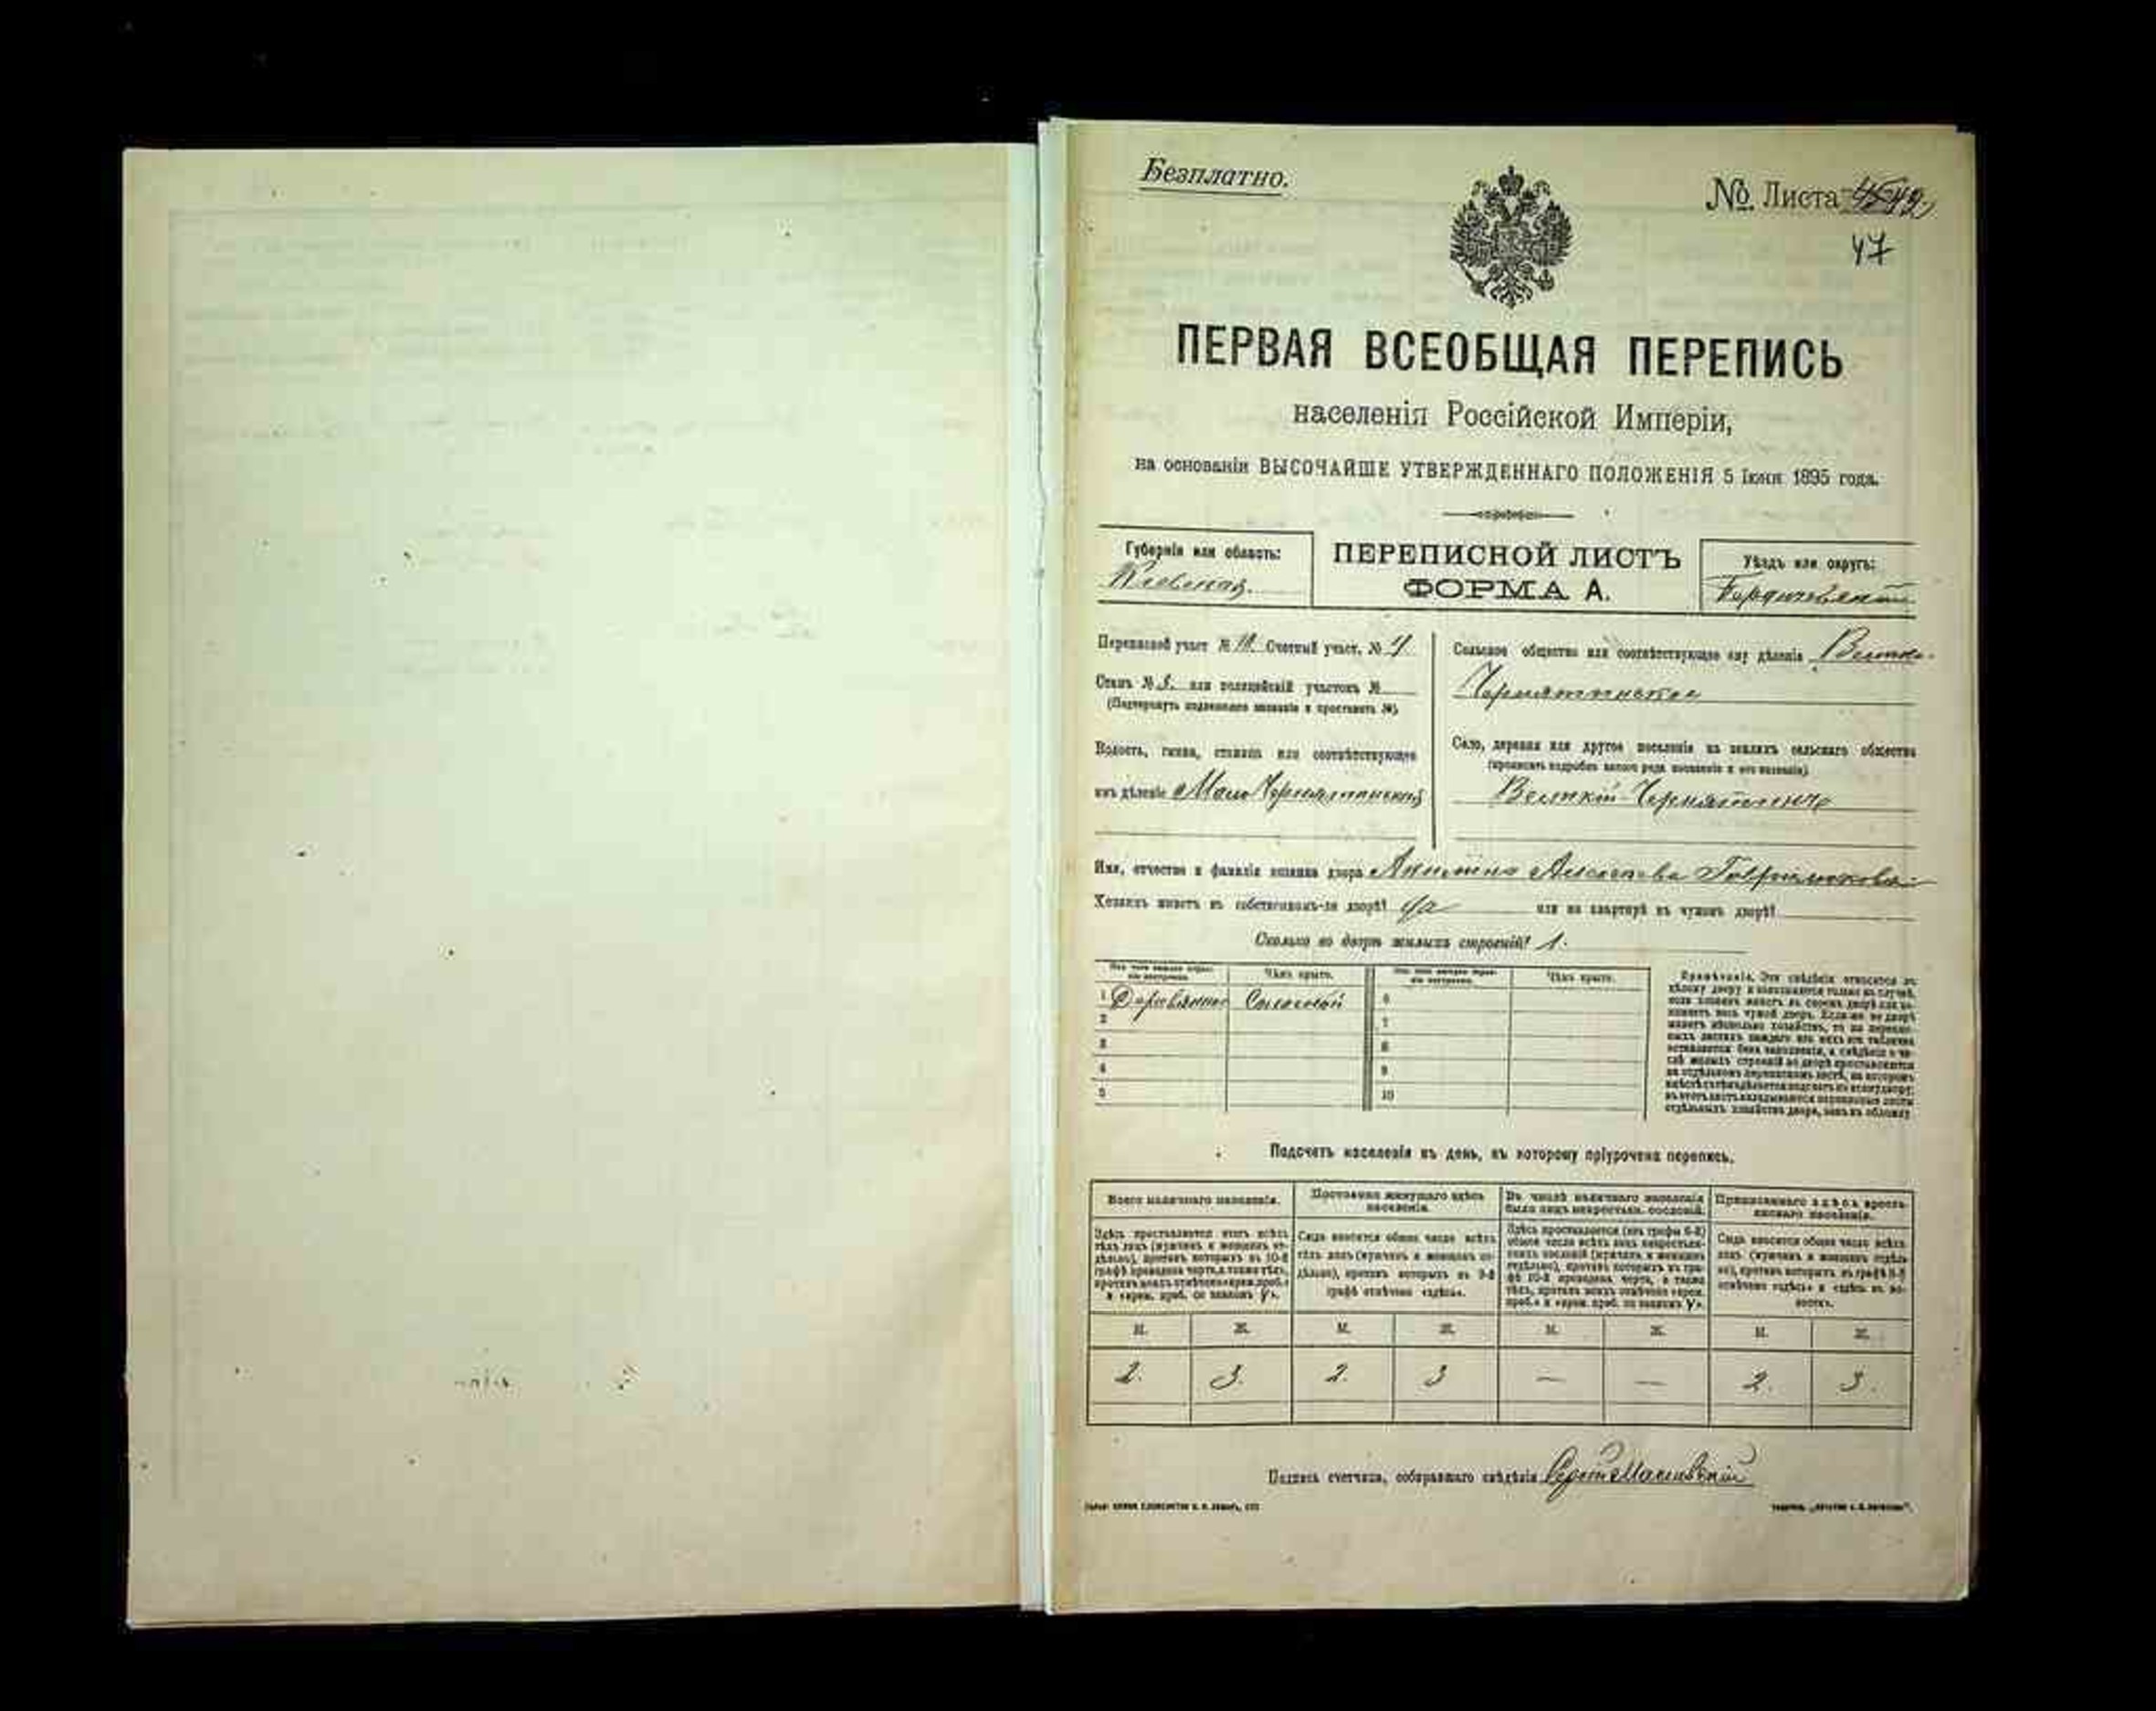 Безплатно.
№ Листа
47
ПЕРВАЯ ВСЕОБЩАЯ ПЕРЕПИСЬ
населенія Россійской Имперіи,
на основаніи ВЫСОЧАЙШЕ УТВЕРЖДЕННАГО ПОЛОЖЕНІЯ 5 Іюня 1895 года.
Губернія или область:
Кіевская.
ПЕРЕПИСНОЙ ЛИСТЪ
ФОРМА А.
Уѣздъ или округъ:
Бердичевскій
Переписной участ. № Счетный участ. № 4
Станъ № или полицейскій участокъ №
(Подчеркнуть подлежащее названіе и проставить №).
Волость, гмина, станица или соотвѣтствующее
имъ дѣленіе Мало-Чернятинская
Сельское общество или соотвѣтствующее ему дѣленіе Велико-
Чернятинское
Село, деревня или другое поселеніе на земляхъ сельскаго общества
(прописать подробно какого рода поселеніе и его названіе)
Великій-Чернятинъ
Имя, отчество и фамилія хозяина двора
Хозяинъ живетъ въ собственномъ-ли дворѣ? да или на квартирѣ въ чужомъ дворѣ?
Сколько во дворѣ жилыхъ строеній? 1.
Изъ чего каждое строеніе построено. Чѣмъ крыто. Изъ чего каждое строеніе построено. Чѣмъ крыто.
1 Деревянное Соломой 6
2 7
3 8
4 9
5 10
Примѣчаніе. Эти свѣдѣнія относятся къ
цѣлому двору и заполняются только въ случаѣ,
если хозяинъ живетъ въ своемъ дворѣ или занимаетъ весь чужой дворъ. Если же во дворѣ
живетъ нѣсколько хозяйствъ, то на переписныхъ листахъ каждаго изъ нихъ эта табличка
оставляется безъ заполненія, а свѣдѣнія о числѣ жилыхъ строеній во дворѣ проставляются
на отдѣльномъ переписномъ листѣ, на которомъ
отдѣльныхъ хозяйствъ двора, какъ въ обложку
Подсчетъ населенія въ день, къ которому пріурочена перепись.
Всего наличнаго населенія. Постоянно живущаго здѣсь населенія. Въ числѣ наличнаго населенія было лицъ некрестьян. сословій. Приписаннаго здѣсь крестьянскаго населенія.
Здѣсь проставляется итогъ всѣхъ
тѣхъ лицъ (мужчинъ и женщинъ отдѣльно), противъ которыхъ въ 10-й
графѣ проведена черта, а также тѣхъ,
противъ коихъ отмѣчено «врем. проб.»
и «врем. проб. со знакомъ V».
Сюда вносится общее число всѣхъ
тѣхъ лицъ (мужчинъ и женщинъ отдѣльно), противъ которыхъ въ 9-й
графѣ отмѣчено «здѣсь».
Здѣсь проставляется (изъ графы 6-й)
общее число всѣхъ лицъ некрестьянскихъ сословій (мужчинъ и женщинъ
отдѣльно), противъ которыхъ въ графѣ 10-й проведена черта, а также
тѣхъ, противъ коихъ отмѣчено «врем.
проб.» и «врем. проб. со знакомъ V».
Сюда вносится общее число всѣхъ
лицъ (мужчинъ и женщинъ отдѣльно), противъ которыхъ въ графѣ 8-й
отмѣчено «здѣсь» и «здѣсь въ волости».
М. Ж. М. Ж. М. Ж. М. Ж.
2. 3. 2. 3 — — 2. 3.
Подпись счетчика, собиравшаго свѣдѣнія